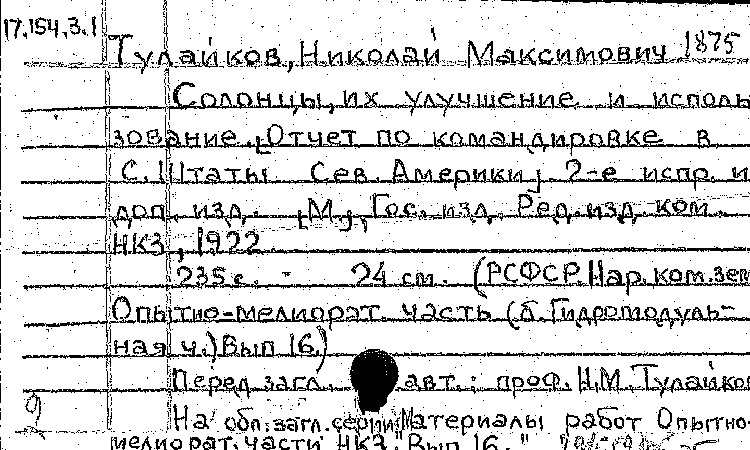 17.154.3.1
Тулайков, Николай Максимович 1875
Солонцы, их улучшение и исполь
зование. [Отчет по командировке в
С. Штаты Сев. Америки] 2-е испр. и
доп. изд. [М.], Гос. изд. Ред. изд. ком.
НКЗ, 1922
235 с. - 24 см. (РСФСР. Нар. ком. зем
Опытно-мелиорат. часть (б. Гидромодуль-
ная ч.) Вып 16.)
Перед загл. авт.: проф. Н.М. Тулайков
На обл. загл. серии: Материалы работ Опытно-
мелиорат. части НКЗ. Вып 16."